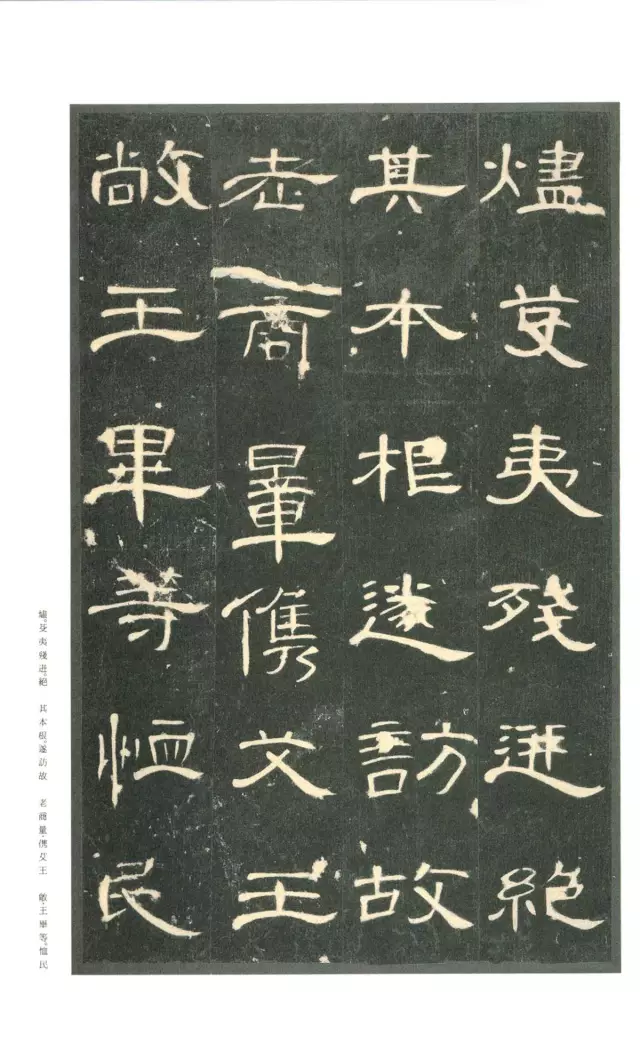 燼芟夷殘迸絕
其本根遂訪故
老商量儁艾王
敞王畢等恤民
燼。芟夷殘迸。絕 其本根。遂訪故 老商量、儁艾王 敞、王畢等。恤民